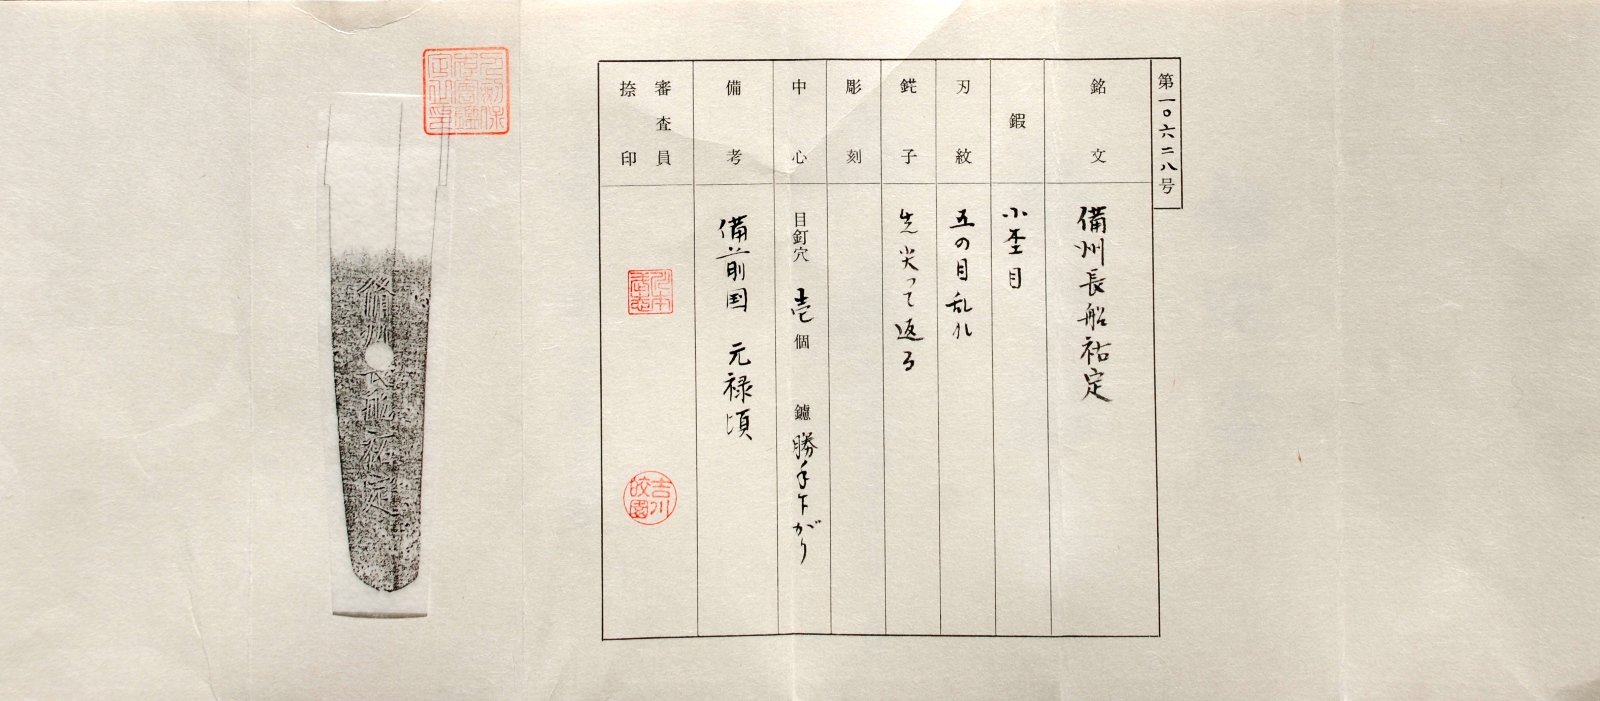 第一〇六二八号
銘文
備州長船祐定
鍜
小杢目
刃紋
五の目乱れ
鋩子
先尖って返る
彫刻
中心
目釘穴 壱個 鑢 勝手下がり
備考
備前国 元禄頃
審査員
捺印
吉川皎園
備州長船祐定